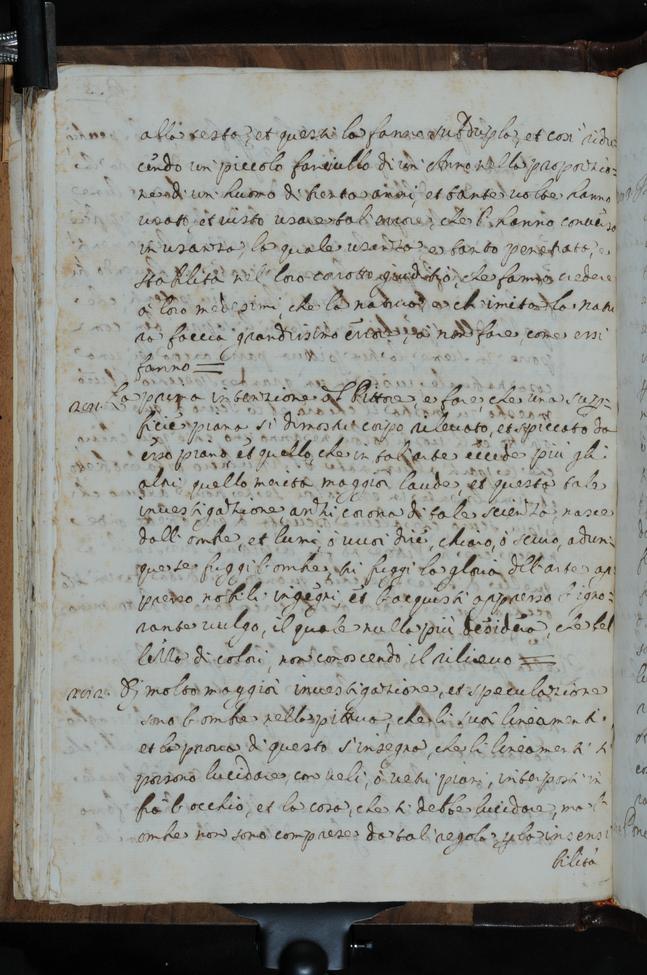 alla sesta, et questi la fanno sudDupla, et cosi ridu=
cendo un piccolo fanciullo di un Anno nella proporzio=
ne di un huomo di trenta anni, et tante volte hanno
usato, et visto usare tal errore, che l'hanno converso
in usanza, la quale usanza e tanto penetrata, e
stabilita nel loro corrotto giuditio, che fanno credere
a loro medesimi, che la natura, o chi imita la natu
ra faccia grandissimo errore, a non fare come essi
fanno =
La prima intenzione del Pittore e fare, che una supp=
ficie piana si dimostri corpo rilevato, et spiccato da
esso piano, et quello, che in tal arte eccede più gli
altri quello merita maggior laude, et questa tale
investigazione anzi corona di tale scienza, nasce
dall' ombre, et lumi, o vuoi dire, chiaro, o scuro, adun
que se fuggi l'ombre, tu fuggi la gloria dell'arte ap=
presso nobili ingegni, et l'acquisti appresso l'igno=
rante vulgo, il quale nulla più desidera, che bel
lezza di colori, non conoscendo il rilievo =
Di molto maggior investigazione, et speculazione
sono l'ombre nella pittura, che li suoi lineamenti,
et la prova di questo s'insegna, che li lineamenti si
possono lucidare, con veli, o vetri piani, interposti in
fra l'occhio, et la cosa, che si debbe lucidare, ma l'
ombre non sono comprese da tal regola, p la insensi
bilità